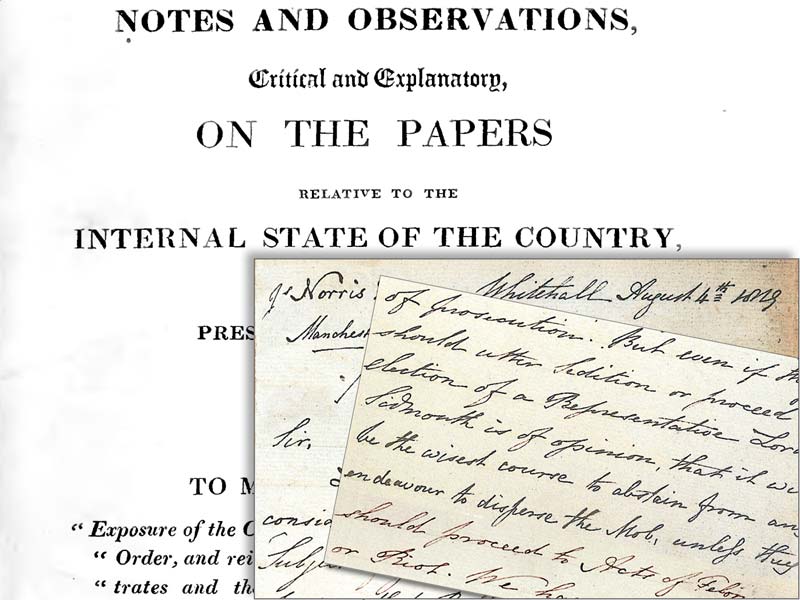 NOTES AND OBSERVATIONS,
Critical and Explanatory,
ON THE PAPERS
RELATIVE TO THE
INTERNAL STATE OF THE COUNTRY,
PRES
TO M
“ Exposure of the C
“ Order, and rei
“ trates and th
Norris
Manchest
Whitehall August 4th 1819
Sir,
consid
Subje
of prosecution. But even if th
should utter Sedition or proceed
election of a Representative Lord
Sidmouth is of opinion, that it wi
be the wisest course to abstain from any
endeavour to disperse the Mob, unless they
should proceed to Acts of Felon
or Riot. We ha